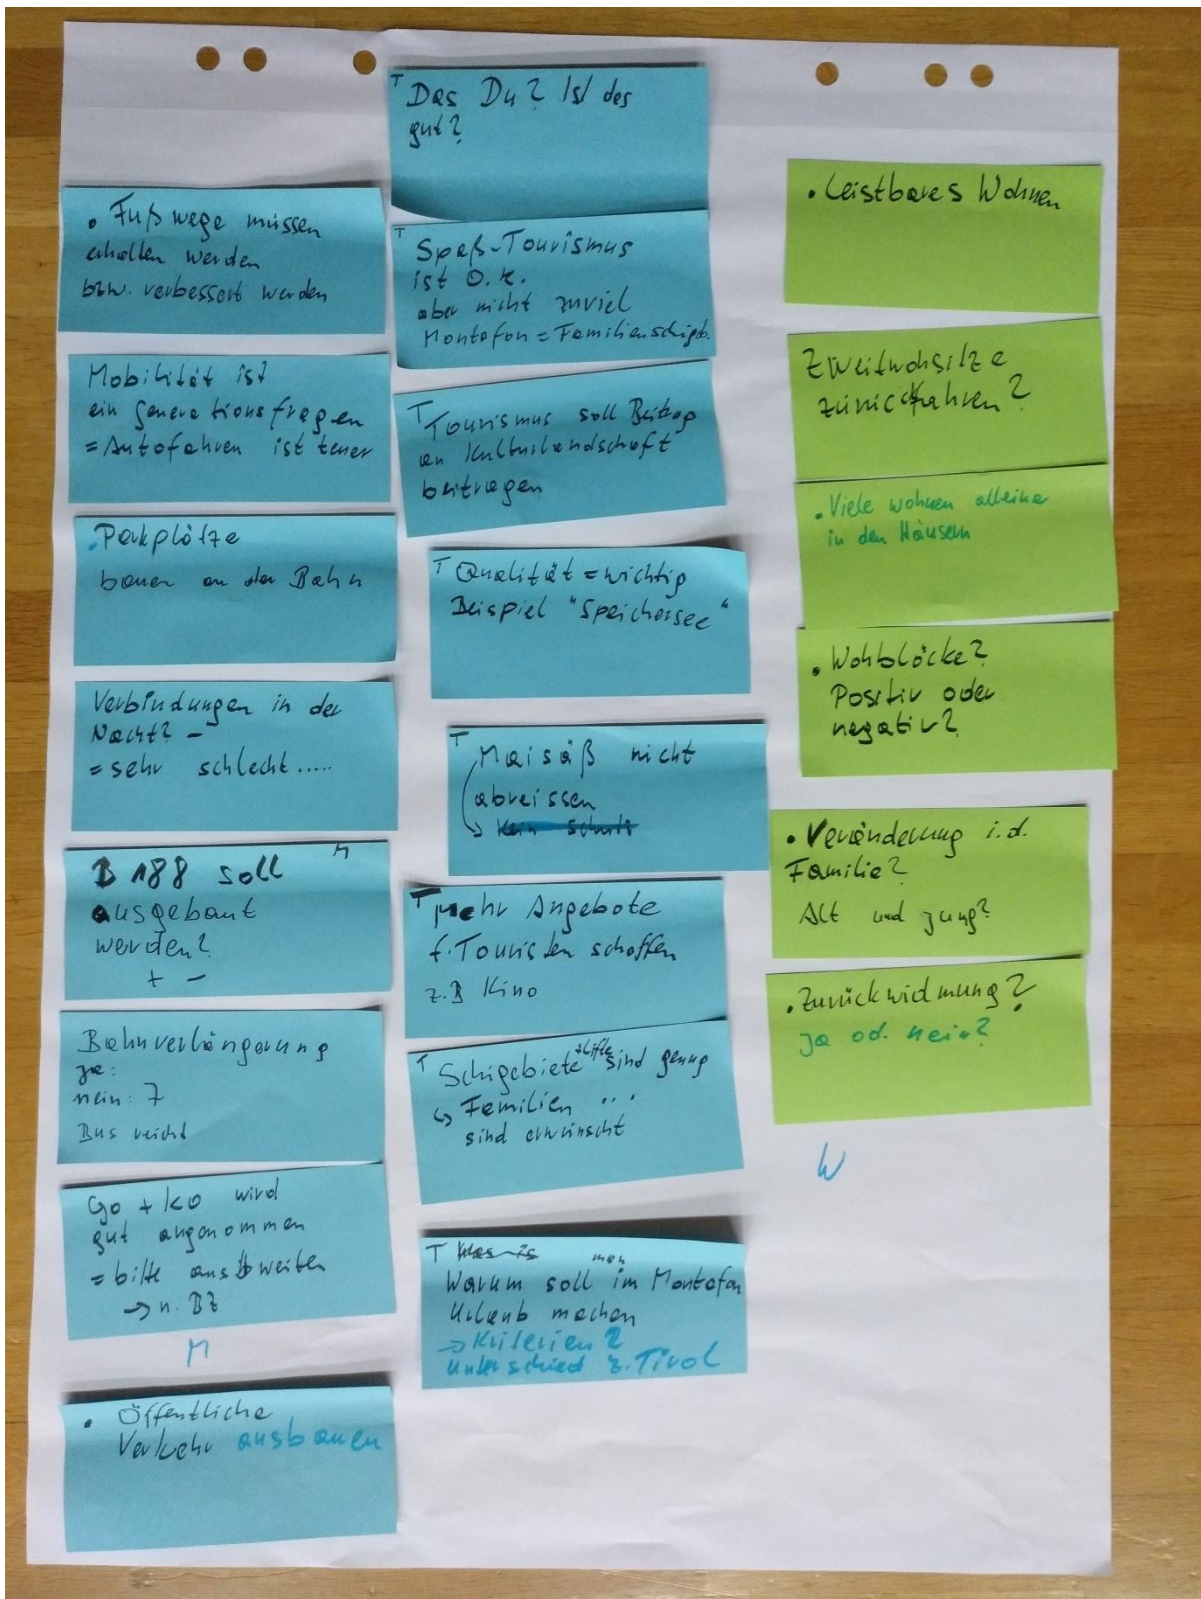 • Fußwege müssen
erhalten werden
bzw. verbessert werden
Mobilität ist
ein Generationsfragen
= Autofahren ist teuer
• Parkplätze
bauen an der Bahn
Verbindungen in der
Nacht? –
= sehr schlecht.....
M
B 188 soll
ausgebaut
werden?
+ –
Bahnverlängerung
ja:
nein: 7
Bus reicht
Go + ko wird
gut angenommen
= bitte ausweiten
→ n. BZ
M
• Öffentliche
Verkehr ausbauen
T Das Du? Ist des
gut?
T Spaß-Tourismus
ist O.K.
aber nicht zuviel
Montafon = Familienschigeb.
T Tourismus soll Beitrag
an Kulturlandschaft
beitragen
T Qualität = wichtig
Beispiel "Speichersee"
T Maisäß nicht
abreissen
→ Kein Schutz
T mehr Angebote
f. Touristen schaffen
z.B Kino
T Schigebiete +Lifte sind genug
↳ Familien ...
sind erwünscht
T Was is
Warum soll man im Montafon
Urlaub machen
→ Kriterien?
Unterschied z. Tirol
• Leistbares Wohnen
Zweitwohsitze
zurückfahren?
• Viele wohnen alleine
in den Häusern
• Wohblöcke?
Positiv oder
negativ?
• Veränderung i.d.
Familie?
Alt und jung?
• Zurückwidmung?
ja od. nein?
W